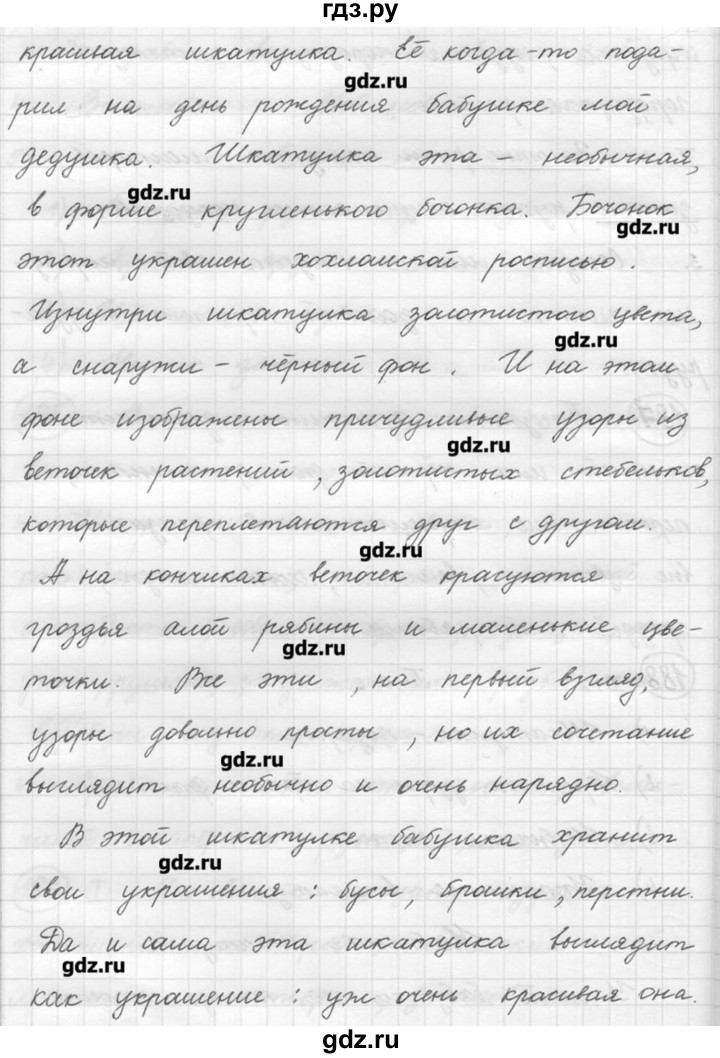 гдз.ру
красивая шкатулка. Её когда-то пода-
gdz.ru
рил на день рождения бабушке мой
дедушка. Шкатулка эта – необычная,
gdz.ru
в форме кругленького бочонка. Бочонок
gdz.ru
этот украшен хохломской росписью.
Изнутри шкатулка золотистого цвета,
gdz.ru
а снаружи – чёрный фон. И на этом
фоне изображены причудливые узоры из
gdz.ru
веточек растений, золотистых стебельков,
которые переплетаются друг с другом.
gdz.ru
А на кончиках веточек красуются
гроздья алой рябины и маленькие цве-
gdz.ru
точки. Все эти, на первый взгляд,
узоры довольно просты, но их сочетание
gdz.ru
выглядит необычно и очень нарядно.
В этой шкатулке бабушка хранит
gdz.ru
свои украшения: бусы, брошки, перстни.
Да и сама эта шкатулка выглядит
gdz.ru
как украшение: уж очень красивая она.
gdz.ru